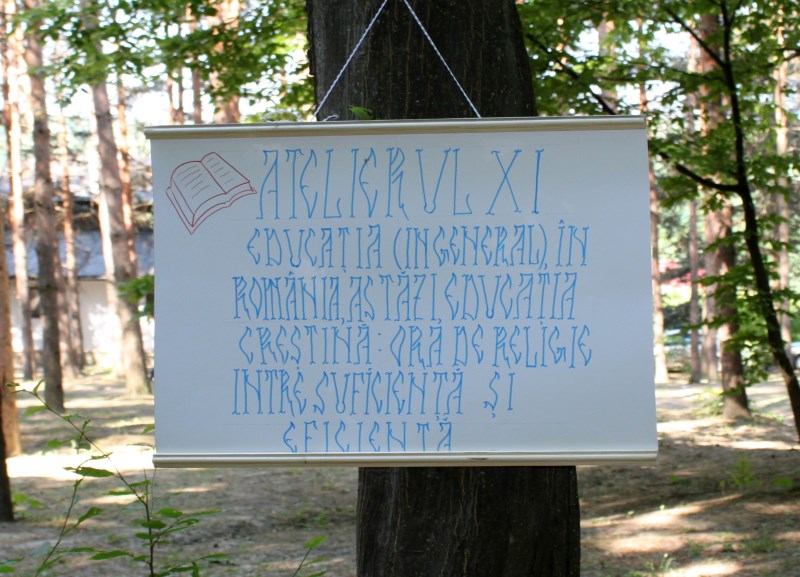 ATELIERUL XI
EDUCAȚIA (IN GENERAL), ÎN
ROMÂNIA, ASTĂZI, EDUCAȚIA
CREȘTINĂ: ORĂ DE RELIGIE
INTRE SUFICIENȚĂ ȘI
EFICIENȚĂ